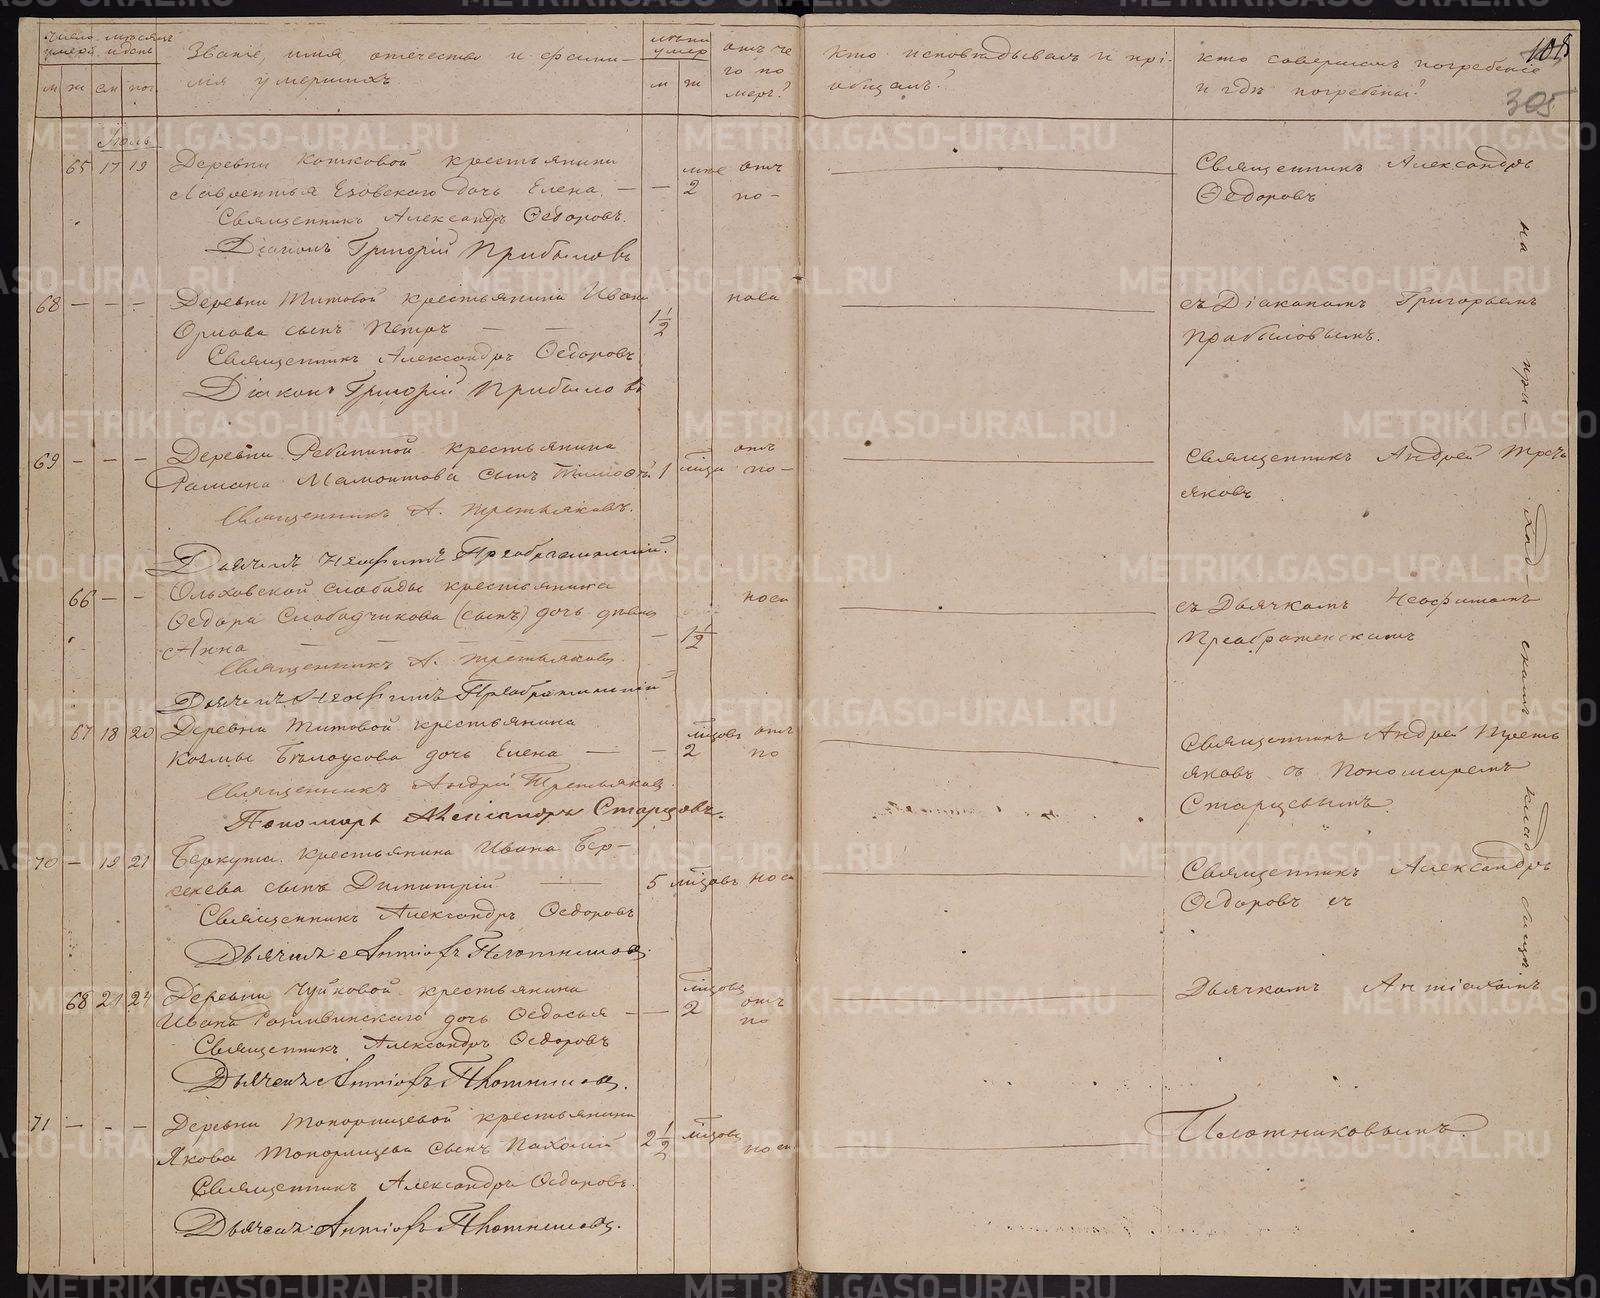 Число умерш. мѣсяцъ и день
Званіе, имя, отечество и фами-
лія умершихъ
лѣты умер
отъ че
го по
меръ?
кто исповѣдывалъ и прі-
общалъ?
кто совершалъ погребеніе
и гдѣ погребены?
108
305
м ж см пог.
м ж
Іюль
65 17 19 Деревни Котковой крестьянина
Лаврентья Езовскаго дочь Елена — — 2 отъ по-
Священникъ Александръ Ѳедоровъ.
Діаконъ Григорій Прибыловъ
Священникъ Александръ
Ѳедоровъ
68 — — — Деревни Титовой крестьянина Ивана
Орлова сынъ Петръ — — 1 1/2 носа
Священникъ Александръ Ѳедоровъ
Діаконъ Григорій Прибыловъ
съ Діакономъ Григорьемъ
Прибыловымъ.
69 — — — Деревни Рябининой крестьянина
Романа Мамонтова сынъ Тимоѳей 1 отъ по-
Священникъ А. Третьяковъ.
Дьячекъ Неофитъ Преображенскій.
Священникъ Андрей Треть
яковъ
66 — — Ольховской слободы крестьянина
Ѳедора Слободчикова (сынъ) дочь дѣвица
Анна — 1 1/2 носа
Священникъ А. Третьяковъ.
Дьячекъ Неофитъ Преображенскій
съ Дьячкомъ Неофитомъ
Преображенскимъ
67 18 20 Деревни Титовой крестьянина
Козмы Бѣлоусова дочь Елена — — 2 мѣсяцовъ отъ по
Священникъ Андрей Третьяковъ
Пономарь Александръ Старцовъ.
Священникъ Андрей Треть
яковъ съ Пономаремъ
Старцевымъ.
70 — 19 21 Беркута крестьянина Ивана Бер-
сенева сынъ Димитрій — 5 мѣсяцовъ носа
Священникъ Александръ Ѳедоровъ
Дьячекъ Антіохъ Плотниковъ.
Священникъ Александръ
Ѳедоровъ съ
68 21 24 Деревни Чуйковой крестьянина
Ивана дочь Ѳедосья — — 2 мѣсяцовъ отъ по
Священникъ Александръ Ѳедоровъ
Дьячекъ Антіохъ Плотниковъ.
Дьячкомъ Антіохомъ
71 — — — Деревни Топорищевой крестьянина
Якова Топорищева сынъ Пахомій 2 1/2 мѣсяцовъ носа
Священникъ Александръ Ѳедоровъ.
Дьячекъ Антіохъ Плотниковъ.
Плотниковымъ.
на при-ход-скомъ кладбищѣ.
METRIKI.GASO-URAL.RU